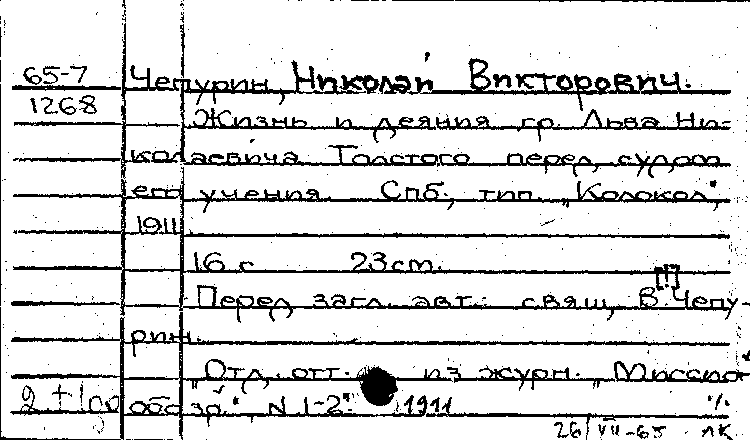 65-7 Чепурин, Николай Викторович.
1268 Жизнь и деяния гр. Льва Ни-
колаевича Толстого перед судом
его учения. Спб., тип. „Колокол",
1911
16 с 23 см.
[!]
Перед загл. авт.: свящ. В. Чепу-
рин.
„Отд. отт. из журн. „Миссио
2 + обозр." N 1-2". 1911
26/VII-65 ЛК